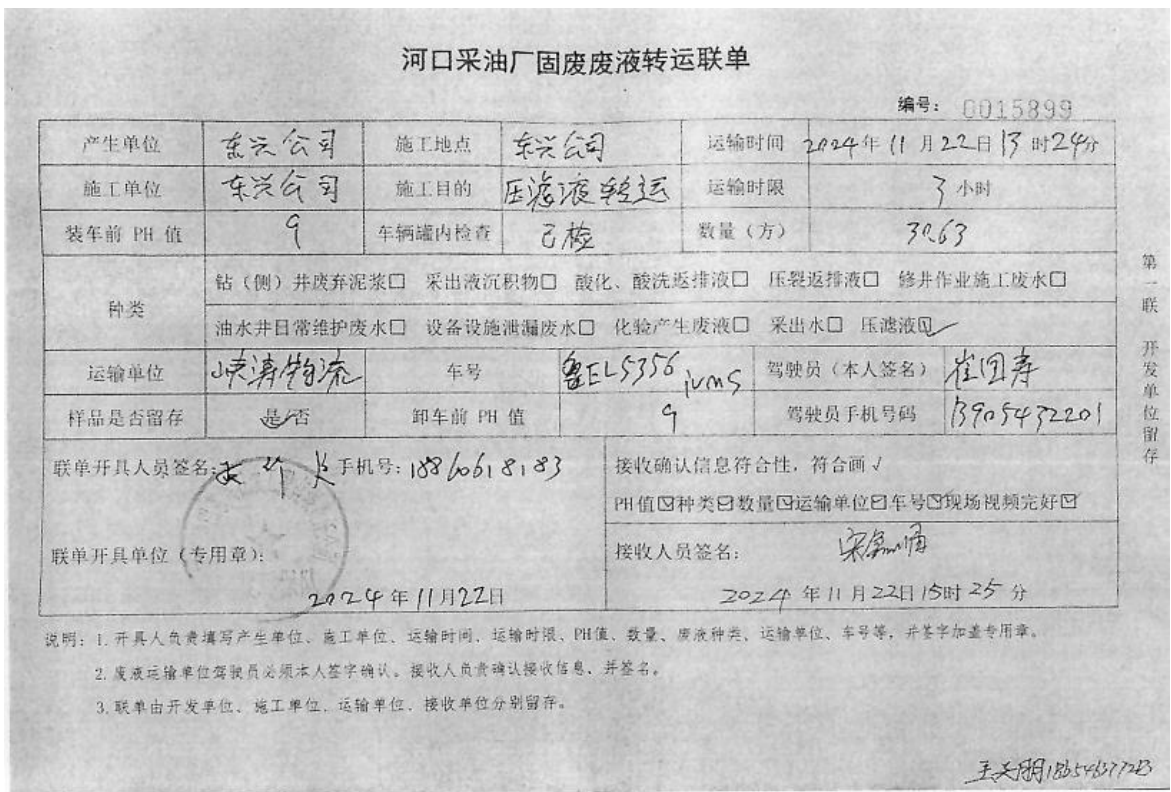 河口采油厂固废废液转运联单
编号: 0015899
产生单位 东兴公司 施工地点 东兴公司 运输时间 2024年11月22日13时24分
施工单位 东兴公司 施工目的 压滤液转运 运输时限 3小时
装车前 PH 值 9 车辆罐内检查 已检 数量（方） 30.63
种类 钻（侧）井废弃泥浆□ 采出液沉积物□ 酸化、酸洗返排液□ 压裂返排液□ 修井作业施工废水□
油水井日常维护废水□ 设备设施泄漏废水□ 化验产生废液□ 采出水□ 压滤液☑
运输单位 车号 鲁EL5356 驾驶员（本人签名）
样品是否留存 是/否 卸车前 PH 值 9 驾驶员手机号码 13905432201
联单开具人员签名: 手机号: 18860618183
接收确认信息符合性，符合画√
PH值☑种类☑数量☑运输单位☑车号☑现场视频完好☑
联单开具单位（专用章）:
2024年11月22日
接收人员签名:
2024年11月22日15时25分
说明: 1.开具人负责填写产生单位、施工单位、运输时间、运输时限、PH值、数量、废液种类、运输单位、车号等，并签字加盖专用章。
2.废液运输单位驾驶员必须本人签字确认。接收人负责确认接收信息、并签名。
3.联单由开发单位、施工单位、运输单位、接收单位分别留存。
第一联 开发单位留存